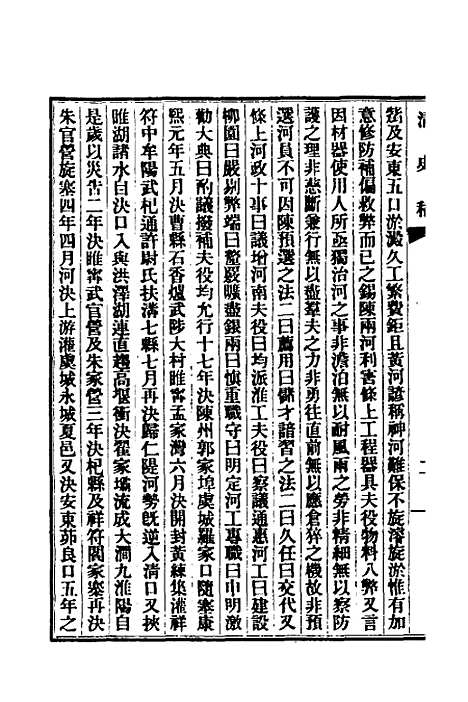 清史稿
二
柴及安東五口淤澱久工繁費鉅且黃河諺稱神河難保不旋濬旋淤惟有加
意修防補偏救弊而已之錫陳兩河利害條上工程器具夫役物料八弊又言
因材器使用人所亟獨治河之事非澹泊無以耐風雨之勞非精細無以察防
護之理非慈斷兼行無以盡羣夫之力非勇往直前無以應倉猝之機故非預
選河員不可因陳預選之法二曰薦用曰儲才諳習之法二曰久任曰交代又
條上河政十事曰議增河南夫役曰均派淮工夫役曰察議通惠河工曰建設
柳園曰嚴剔弊端曰釐覈曠盡銀兩曰慎重職守曰明定河工專職曰申明激
勸大典曰酌議撥補夫役均允行十七年決陳州郭家埠虞城羅家口隨塞康
熙元年五月決曹縣石香爐武陟大村睢寧孟家灣六月決開封黃練集灌祥
符中牟陽武杞通許尉氏扶溝七縣七月再決歸仁隄河勢既逆入清口又挾
睢湖諸水自決口入與洪澤湖連直趨高堰衝決翟家壩流成大澗九淮陽自
是歲以災告二年決睢寧武官營及朱家營三年決杞縣及祥符閻家寨再決
朱官營旋塞四年四月河決上游灌虞城永城夏邑又決安東茆良口五年之